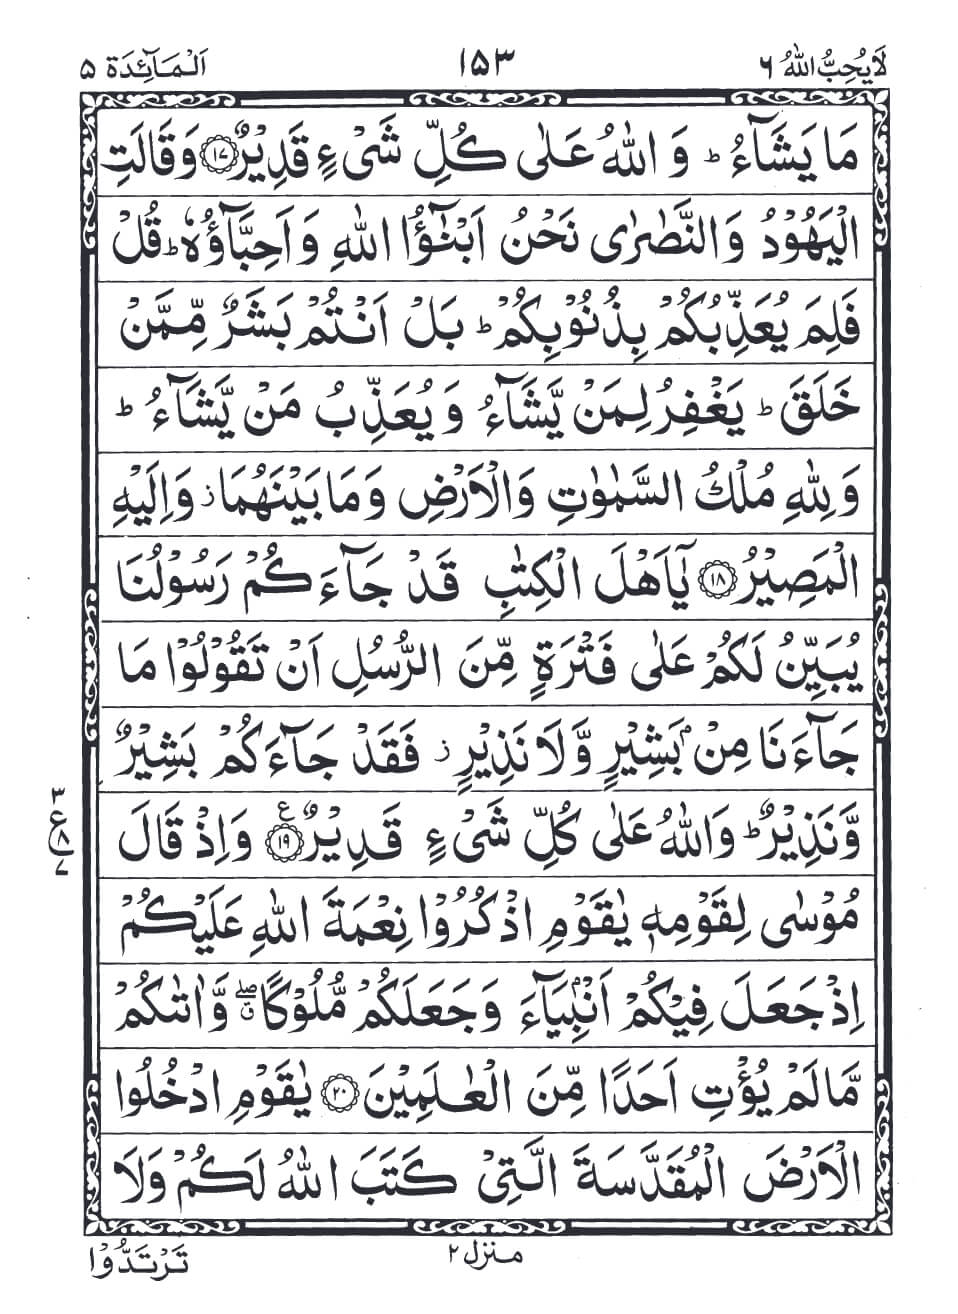 لَا يُحِبُّ اللّٰهُ ٦
١٥٣
اَلْمَآئِدَة ٥
مَا يَشَآءُ ؕ وَ اللّٰهُ عَلٰى كُلِّ شَىْءٍ قَدِيْرٌ ﴿١٧﴾ وَقَالَتِ
الْيَهُوْدُ وَالنَّصٰرٰى نَحْنُ اَبْنٰٓؤُا اللّٰهِ وَاَحِبَّآؤُهٗ ؕ قُلْ
فَلِمَ يُعَذِّبُكُمْ بِذُنُوْبِكُمْ ؕ بَلْ اَنْتُمْ بَشَرٌ مِّمَّنْ
خَلَقَ ؕ يَغْفِرُ لِمَنْ يَّشَآءُ وَيُعَذِّبُ مَنْ يَّشَآءُ ؕ
وَلِلّٰهِ مُلْكُ السَّمٰوٰتِ وَالْاَرْضِ وَمَا بَيْنَهُمَا ز وَاِلَيْهِ
الْمَصِيْرُ ﴿١٨﴾ يٰٓاَهْلَ الْكِتٰبِ قَدْ جَآءَكُمْ رَسُوْلُنَا
يُبَيِّنُ لَكُمْ عَلٰى فَتْرَةٍ مِّنَ الرُّسُلِ اَنْ تَقُوْلُوْا مَا
جَآءَنَا مِنْۢ بَشِيْرٍ وَّلَا نَذِيْرٍ ز فَقَدْ جَآءَكُمْ بَشِيْرٌ
وَّنَذِيْرٌ ؕ وَاللّٰهُ عَلٰى كُلِّ شَىْءٍ قَدِيْرٌ ﴿١٩﴾ ع وَاِذْ قَالَ
٣
ع ٨
٧
مُوْسٰى لِقَوْمِهٖ يٰقَوْمِ اذْكُرُوْا نِعْمَةَ اللّٰهِ عَلَيْكُمْ
اِذْ جَعَلَ فِيْكُمْ اَنْۢبِيَآءَ وَجَعَلَكُمْ مُّلُوْكًا ۖ وَّاٰتٰىكُمْ
مَّا لَمْ يُؤْتِ اَحَدًا مِّنَ الْعٰلَمِيْنَ ﴿٢٠﴾ يٰقَوْمِ ادْخُلُوا
الْاَرْضَ الْمُقَدَّسَةَ الَّتِىْ كَتَبَ اللّٰهُ لَكُمْ وَلَا
منزل ٢
تَرْتَدُّوْا